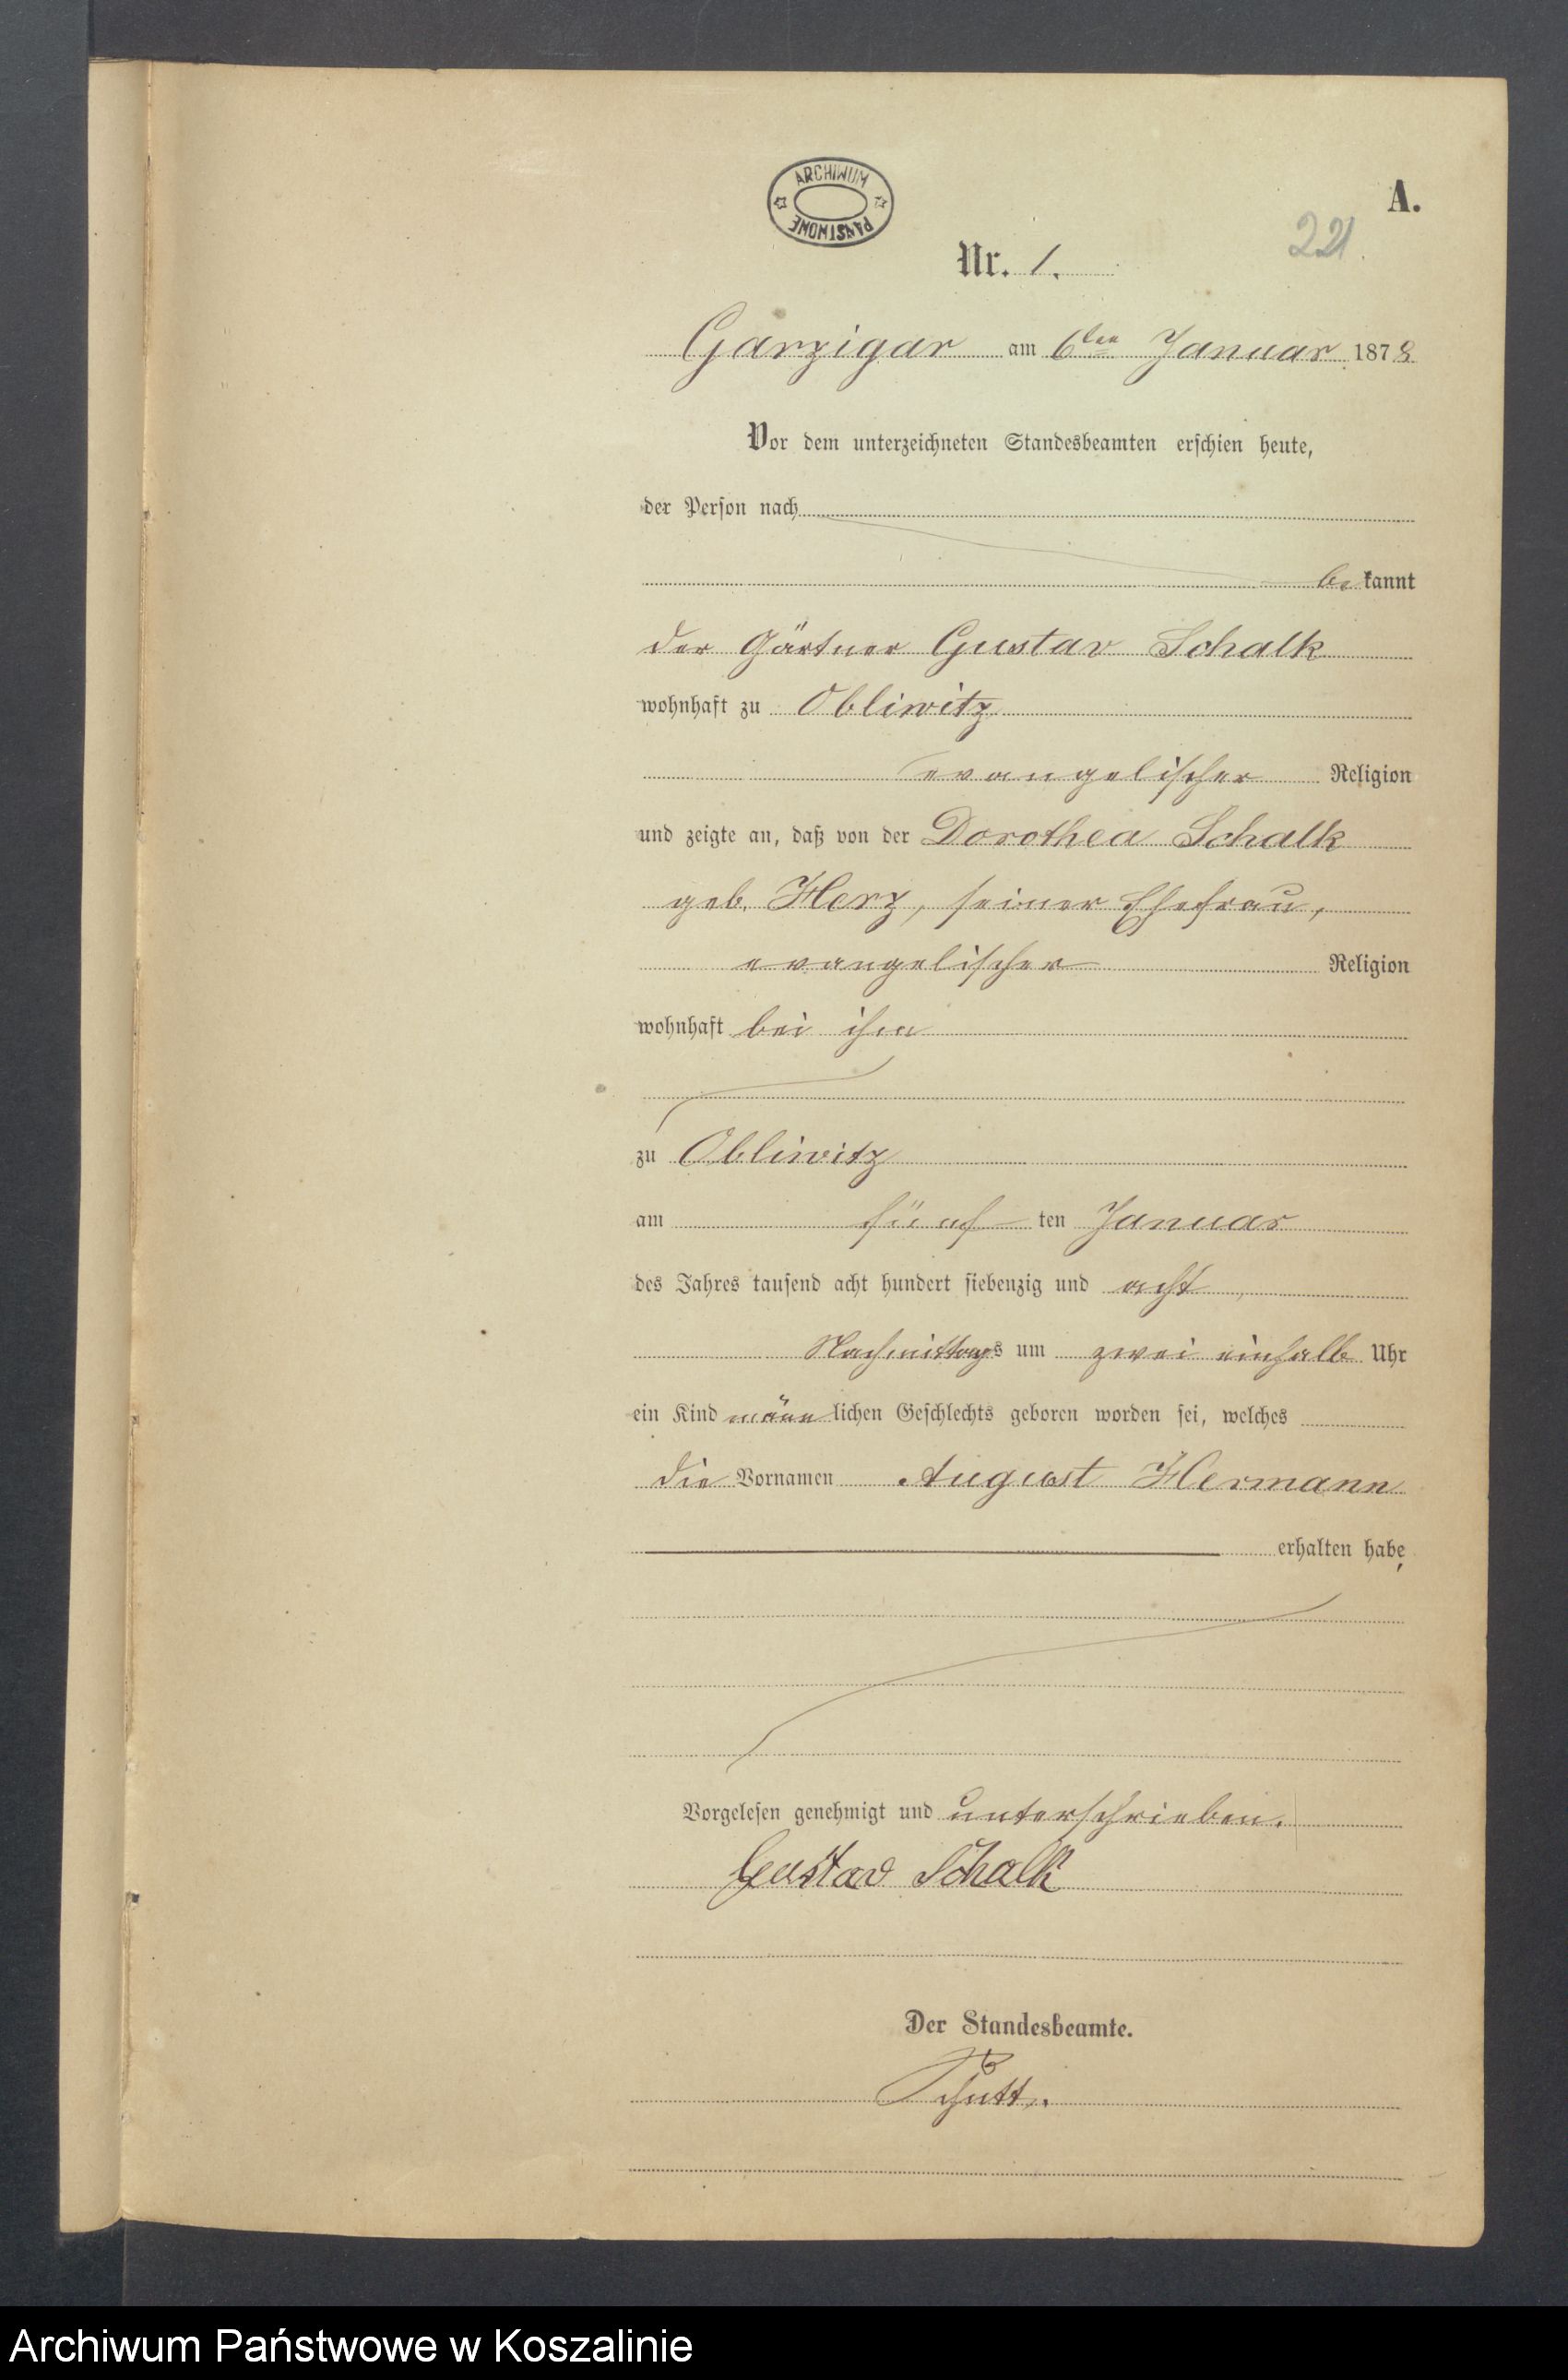 ARCHIWUM PAŃSTWOWE
A.
221.
Nr. 1.
Garzigar am 6ten Januar 1878
Vor dem unterzeichneten Standesbeamten erschien heute,
der Person nach
be kannt
der Gärtner Gustav Schalk
wohnhaft zu Obliwitz
evangelischer Religion
und zeigte an, daß von der Dorothea Schalk
geb. Herz, seiner Ehefrau,
evangelischer Religion
wohnhaft bei ihm
zu Obliwitz
am fünf ten Januar
des Jahres tausend acht hundert siebenzig und acht,
Nachmittags um zwei einhalb Uhr
ein Kind männlichen Geschlechts geboren worden sei, welches
die Vornamen August Hermann
erhalten habe,
Vorgelesen genehmigt und unterschrieben.
Gustav Schalk
Der Standesbeamte.
Archiwum Państwowe w Koszalinie